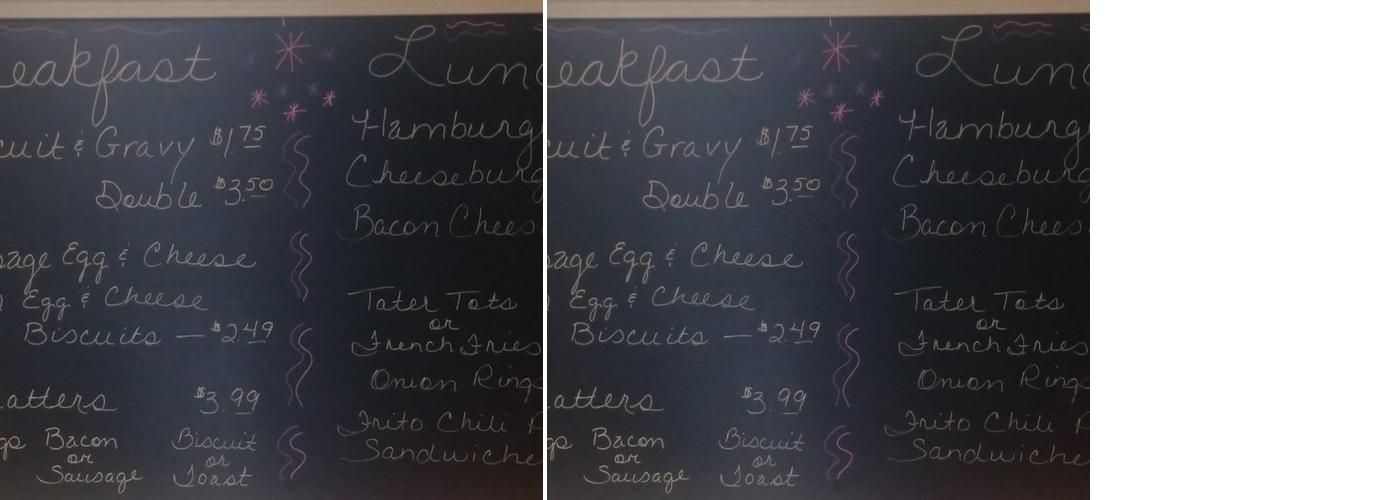 eakfast
cuit & Gravy $1.75
Double $3.50
sage Egg & Cheese
Egg & Cheese
Biscuits — $2.49
atters $3.99
gs Bacon
or
Sausage
Biscuit
or
Toast
Lunc
Hamburg
Cheeseburg
Bacon Chees
Tater Tots
or
French Fries
Onion Rings
Frito Chili P
Sandwiche
eakfast
cuit & Gravy $1.75
Double $3.50
sage Egg & Cheese
Egg & Cheese
Biscuits — $2.49
atters $3.99
gs Bacon
or
Sausage
Biscuit
or
Toast
Lunc
Hamburg
Cheeseburg
Bacon Chees
Tater Tots
or
French Fries
Onion Rings
Frito Chili P
Sandwiche